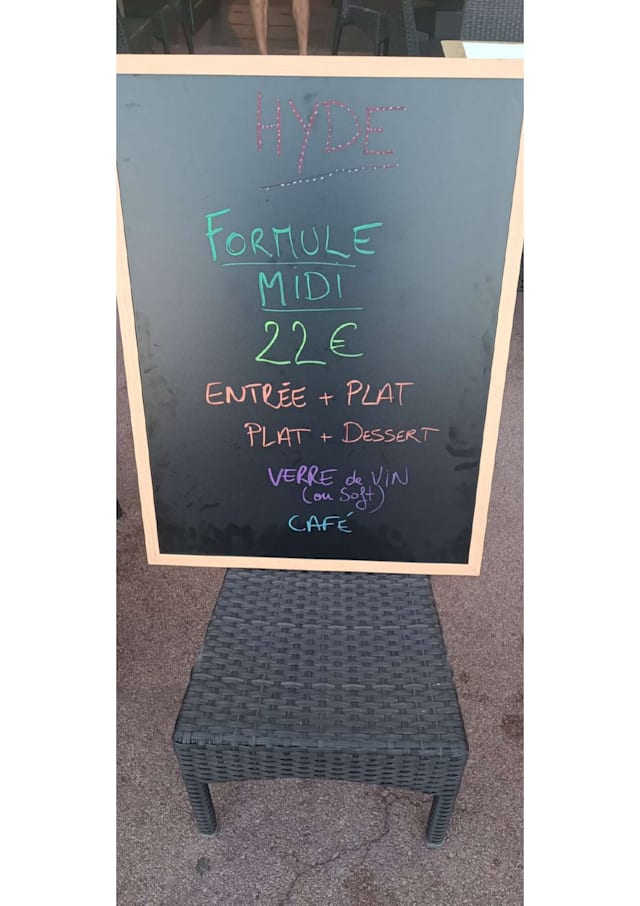 HYDE
FORMULE
MIDI
22€
ENTRÉE + PLAT
PLAT + DESSERT
VERRE de VIN
(ou Soft)
CAFÉ